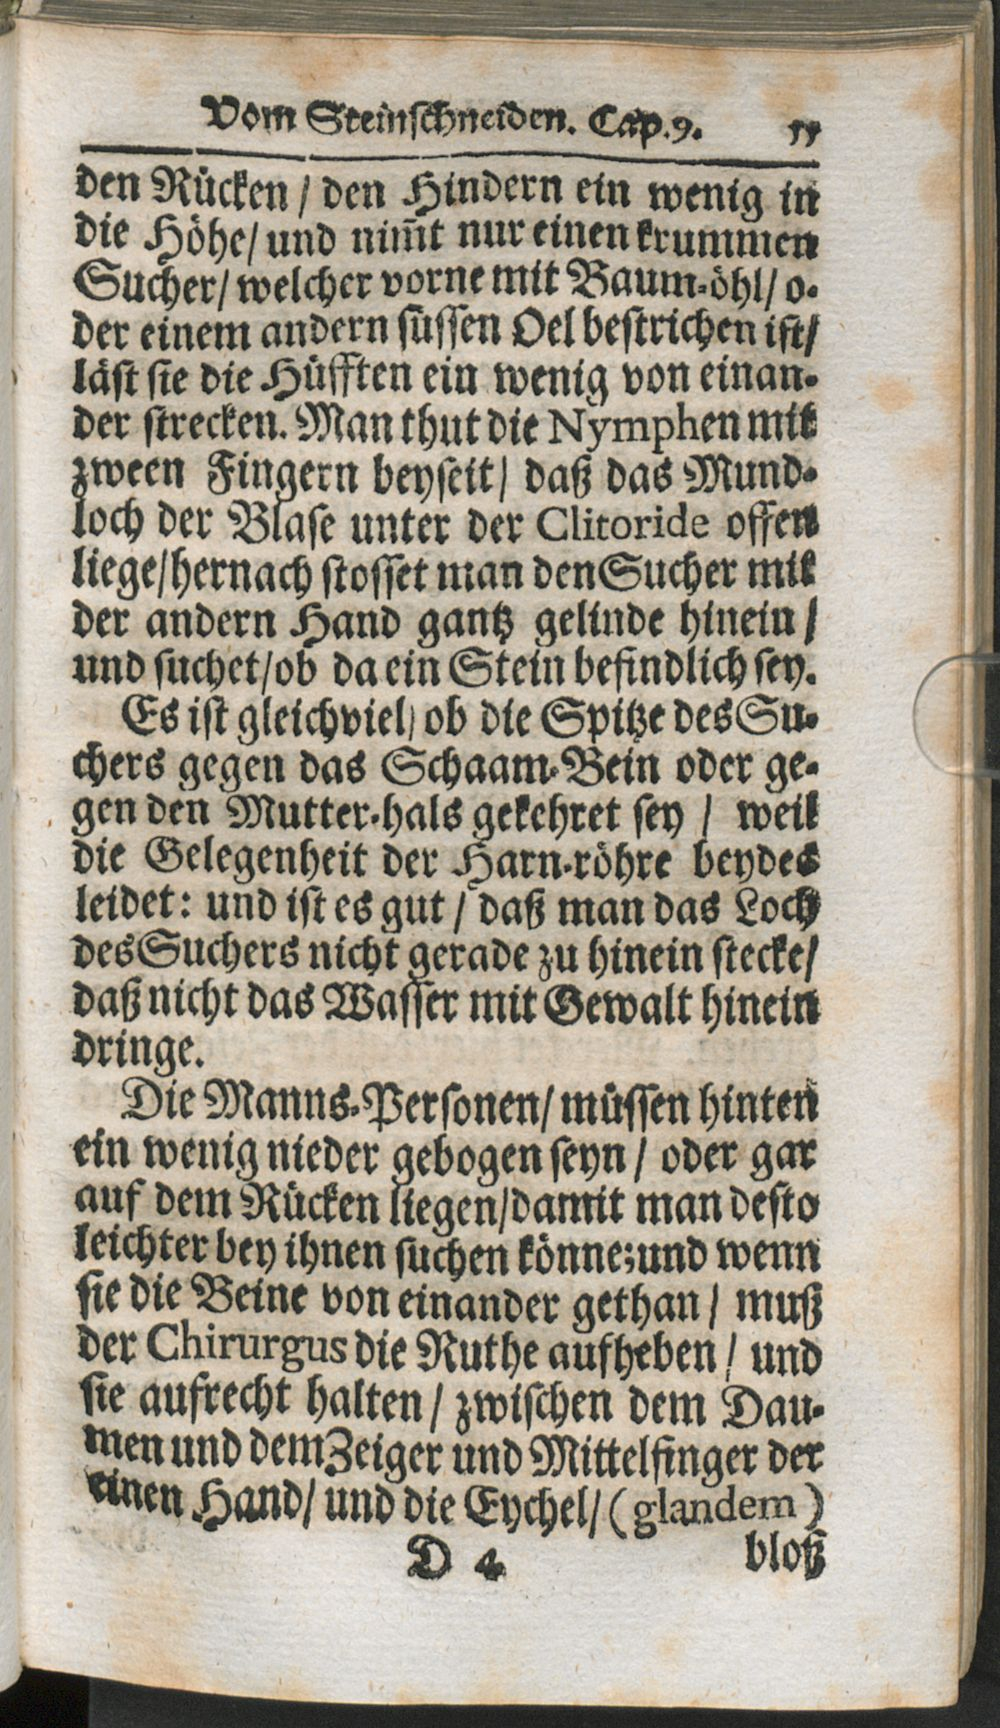 Vom Steinschneiden. Cap. 9. 55
den Rücken / den Hindern ein wenig in
die Höhe / und nim̄t nur einen krummen
Sucher / welcher vorne mit Baum-öhl / o-
der einem andern süssen Oel bestrichen ist /
läst sie die Hüfften ein wenig von einan-
der strecken. Man thut die Nymphen mit
zween Fingern beyseit / daß das Mund-
loch der Blase unter der Clitoride offen
liege / hernach stosset man den Sucher mit
der andern Hand gantz gelinde hinein /
und suchet / ob da ein Stein befindlich sey.
Es ist gleichviel / ob die Spitze des Su-
chers gegen das Schaam-Bein oder ge-
gen den Mutter-hals gekehret sey / weil
die Gelegenheit der Harn-röhre beydes
leidet: und ist es gut / daß man das Loch
des Suchers nicht gerade zu hinein stecke /
daß nicht das Wasser mit Gewalt hinein
dringe.
Die Manns-Personen / müssen hinten
ein wenig nieder gebogen seyn / oder gar
auf dem Rücken liegen / damit man desto
leichter bey ihnen suchen könne; und wenn
sie die Beine von einander gethan / muß
der Chirurgus die Ruthe aufheben / und
sie aufrecht halten / zwischen dem Dau-
men und dem Zeiger und Mittelfinger der
einen Hand / und die Eychel / (glandem)
D 4 bloß